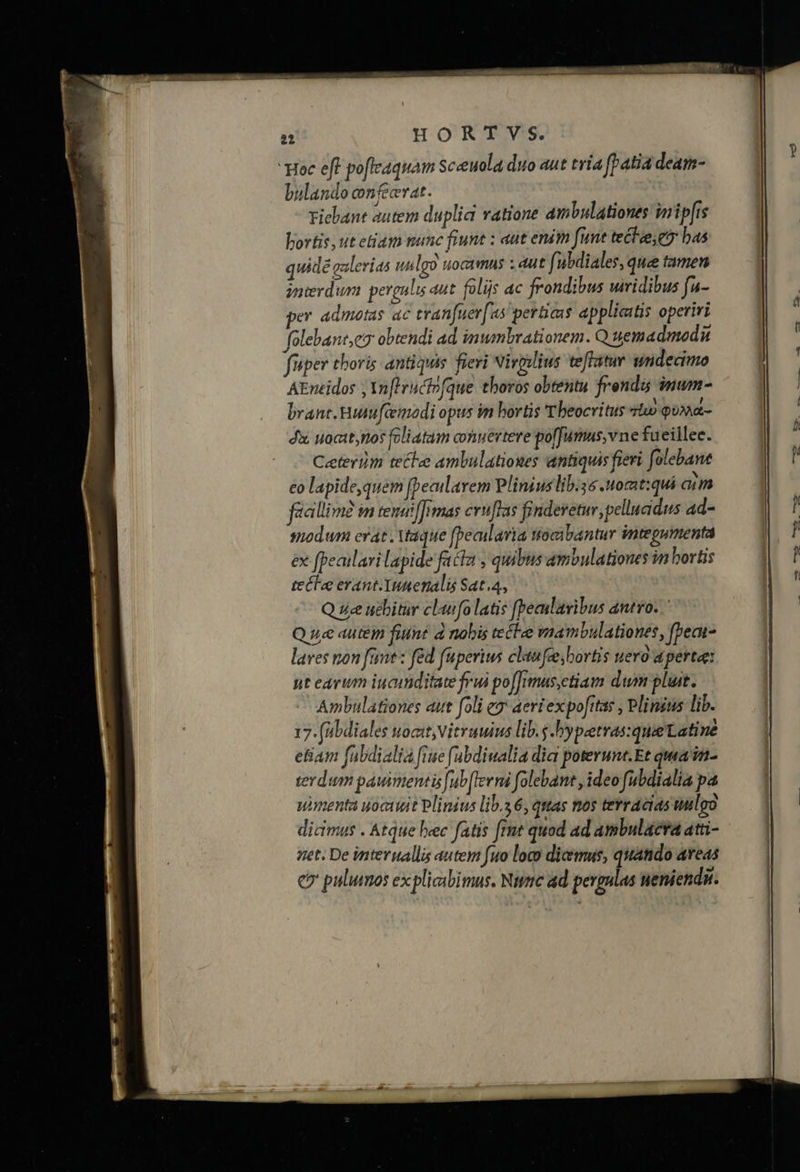 22 HORTVS.
Hoc eſt poſteaquam Scæuola duo aut tria ſpatia deam-
bulando confecerat.
Fiebant autem duplici ratione ambulationes in ipſis
hortis, ut etiam nunc fiunt : aut enim ſunt tectæ, & has
quidẽ galerias uulgò uocamus : aut ſubdiales, quæ tamen
interdum pergulis aut folijs ac frondibus uiridibus ſu-
per admotas ac tranſuerſas perticas applicatis operiri
ſolebant, & obtendi ad inumbrationem. Quemadmodũ
ſuper thoris antiquis fieri Virgilius teſtatur undecimo
AEneidos, Inſtructósque thoros obtentu frondis inum-
brant. Huiuſcemodi opus in hortis Theocritus τὴν φυλλά-
δα uocat, nos foliatam conuertere poſſumus, vne fueillee.
Cæterùm tectæ ambulationes antiquis fieri ſolebant
eo lapide, quem ſpecularem Plinius lib. 36. uocat: qui cùm
facillimè in tenuiſſimas cruſtas finderetur, pellucidus ad-
modum erat. Itaque ſpecularia uocabantur integumenta
ex ſpeculari lapide facta, quibus ambulationes in hortis
tectæ erant. Iuuenalis Sat. 4,
Quæ uehitur clauſo latis ſpecularibus antro.
Quæ autem fiunt à nobis tectæ inambulationes, ſpecu-
lares non ſunt : ſed ſuperius clauſæ, hortis uerò apertæ:
ut earum iucunditate frui poſſimus, etiam dum pluit.
Ambulationes aut ſoli & aeri expoſitas, Plinius lib.
17. ſubdiales uocat, Vitruuius lib. 5. hypætras: quæ Latinè
etiam ſubdialia ſiue ſubdiualia dici poterunt. Et quia in-
terdum pauimentis ſubſterni ſolebant, ideo ſubdialia pa
uimenta uocauit Plinius lib. 36, quas nos terracias uulgò
dicimus. Atque hæc ſatis ſint quod ad ambulacra atti-
net. De interuallis autem ſuo loco dicemus, quando areas
& puluinos explicabimus. Nunc ad pergulas ueniendũ.